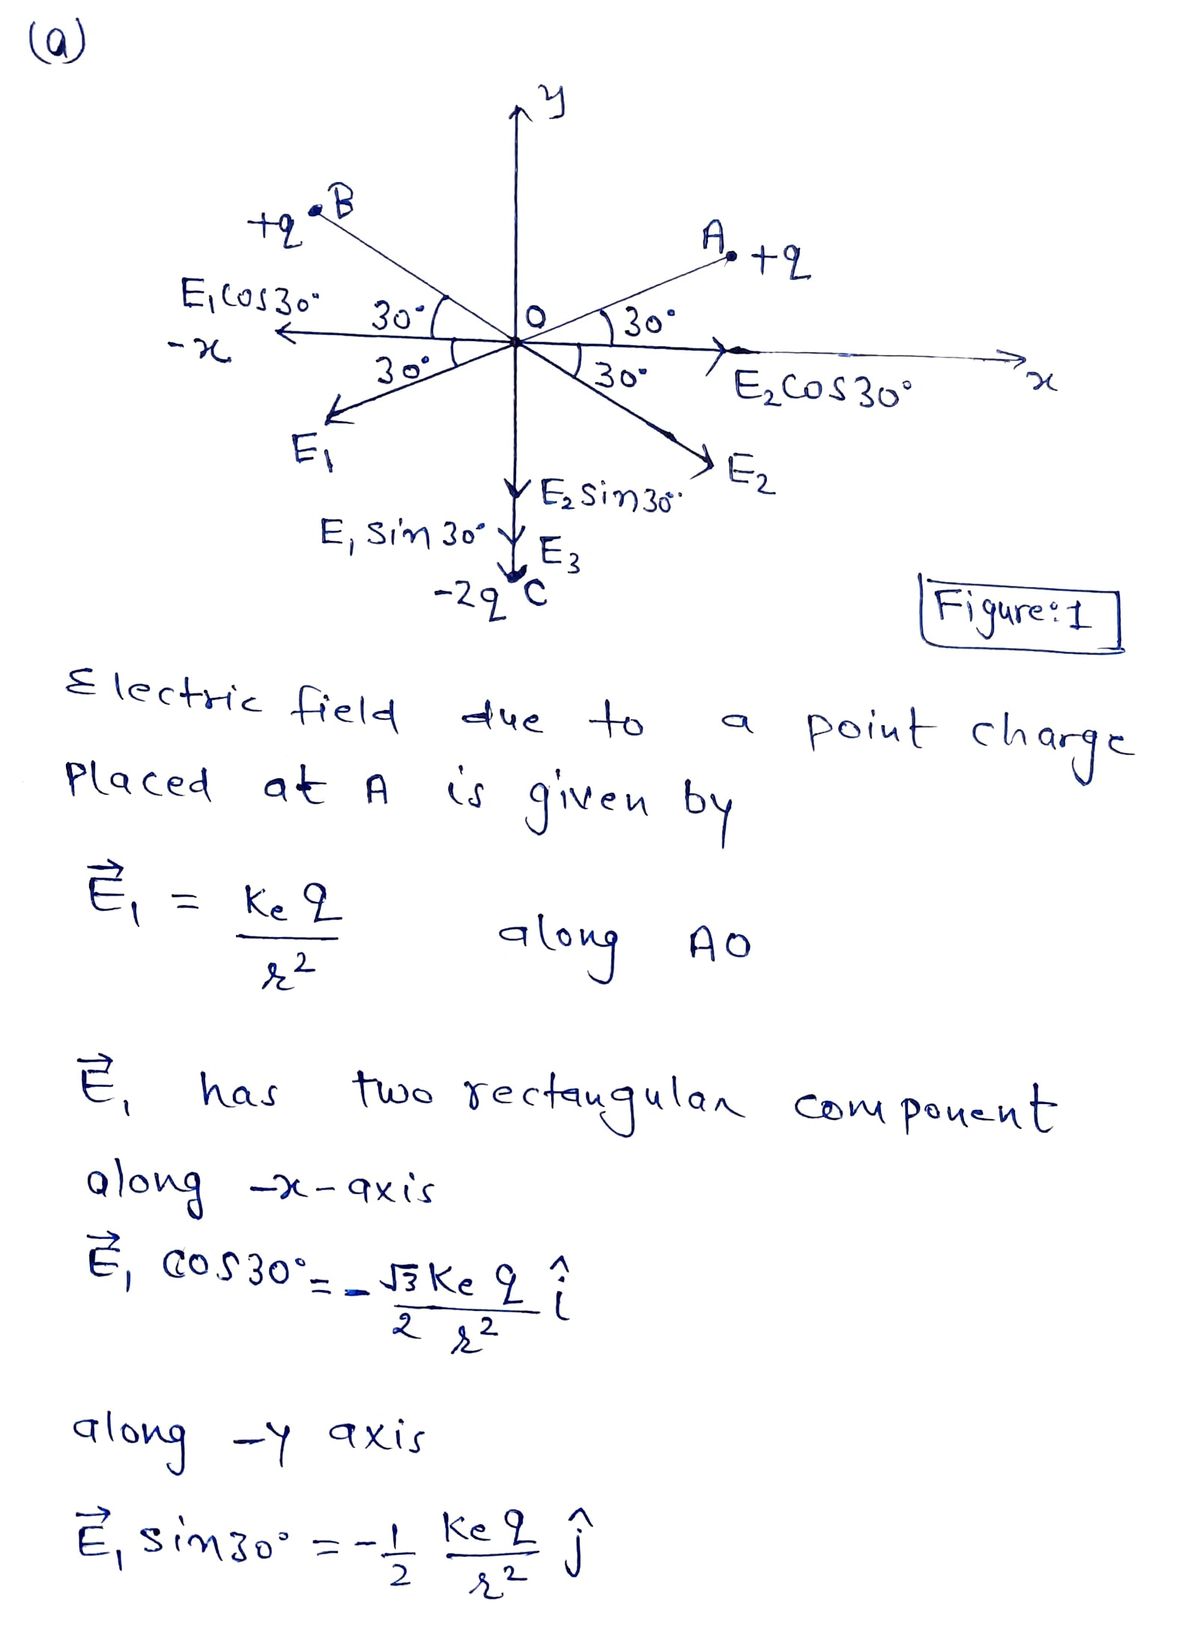 (a)
y
B
+q
A
+q
E₁cos30°
30°
O
30°
-x
30°
30°
E₂cos30°
x
E₁
E₂
E₂sin30°
E₁ sin30°
E₃
-2q
C
Figure:1
Electric field due to a point charge
Placed at A is given by
E⃗₁ = Ke q / r² along AO
E⃗₁ has two rectangular component
along -x-axis
E⃗₁ cos30° = - √3 Ke q / 2 r² î
along -y axis
E⃗₁ sin30° = - 1/2 Ke q / r² ĵ